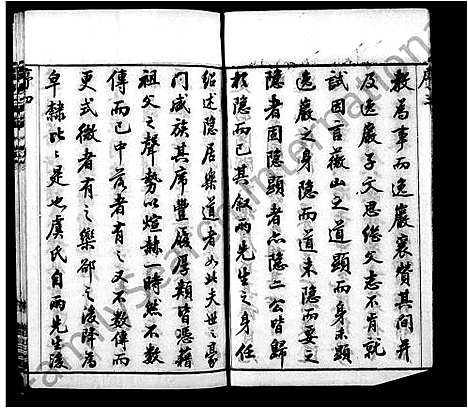 序三
教為事而逸巖襄贊其間并
及逸巖子文思繼父志不肯就
試因言薇山之道顯而身未顯
逸巖之身隱而道未隱而要之
隱者固隱顯者亦隱二公皆歸
於隱而已其叙兩先生之身任
紹述隱居樂道者如此夫世之豪
門盛族其席豐履厚類皆憑藉
祖父之聲勢以煊赫一時然不數
傳而已中落者有之又不數傳而
更式微者有之欒郤之後降為
皁隸比比是也虞氏自兩先生後
序四
FamilySearch International